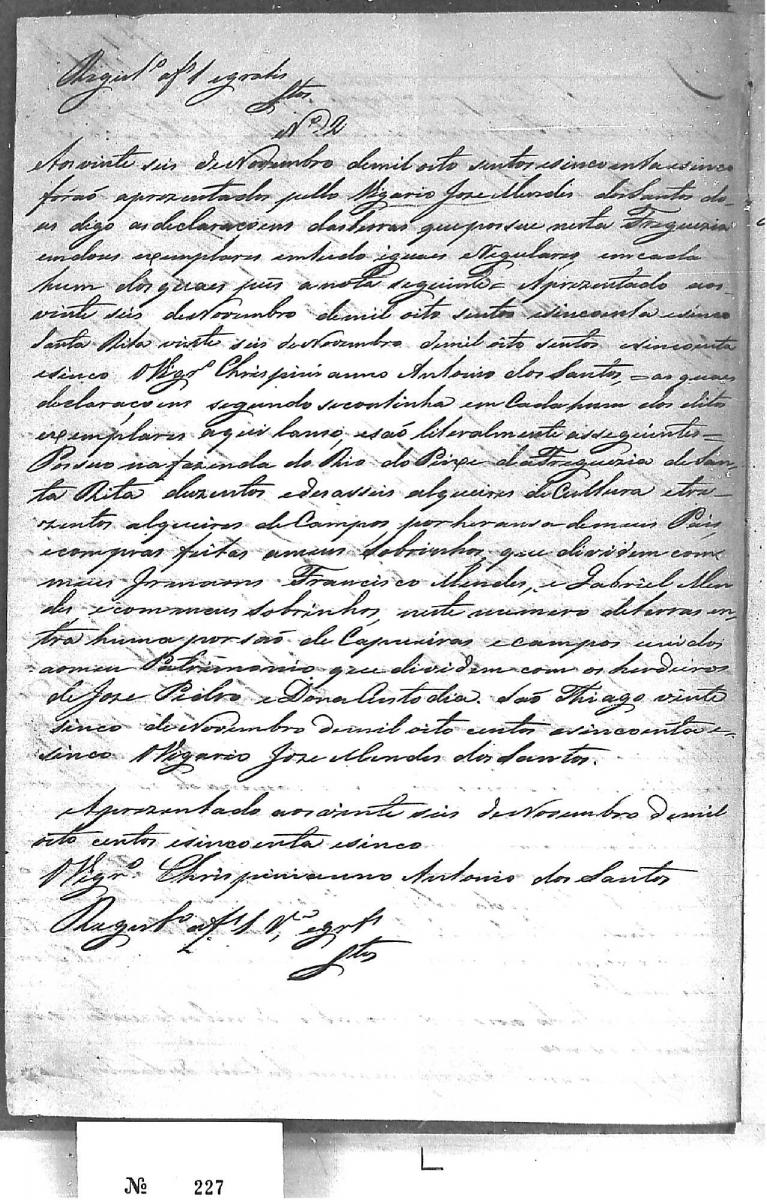 Regist.º afs 1 e gratis
Stos
Nº 2
Aos vinte seis de Novembro de mil oito sentos e sincoenta e sinco
fórão aprezentados pello Vigario Joze Mendes dos Santos do-
us digo as declaraçoens das terras que possue nesta Freguezia
em dous exemplares em tudo iguaes e Regulares, em cada
hum dos quaes pús a nota seguinte = Aprezentado aos
vinte seis de Novembro de mil oito sentos e sincoenta e sinco
Santa Rita vinte seis de Novembro de mil oito sentos e sincoenta
e sinco O Vigrº Chrispinianno Antonio dos Santos, = as quaes
declaraçoens segundo se continha em Cada hum dos ditos
exemplares aqui lanso, e saõ literalmente as seguintes =
Possuo na fazenda do Rio do Peixe da Freguezia de San-
ta Rita duzentos e desasseis alqueires de Cultura e tre-
zentos alqueires de Campos por heransa de meus Pais
e compras feitas a meus Sobrinhos, que dividem com
meus Irmaons Francisco Mendes, e Gabriel Men
des, e com meus Sobrinhos, neste numero de terras en-
trá huma porsaõ de Capueiras e campos unidos
ao meu Patrimonio que dividem com os herdeiros
de Joze Pedro e Dona Custodia. Saõ Thiago vinte
sinco de Novembro de mil oito centos e sincoenta e-
sinco O Vigario Joze Mendes dos Santos.
Aprezentado aos vinte seis de Novembro de mil
oito centos e sincoenta e sinco
O Vigrº Chrispinianno Antonio dos Santos
Regist.º afs 1 Vº e grts
Stos
№ 227